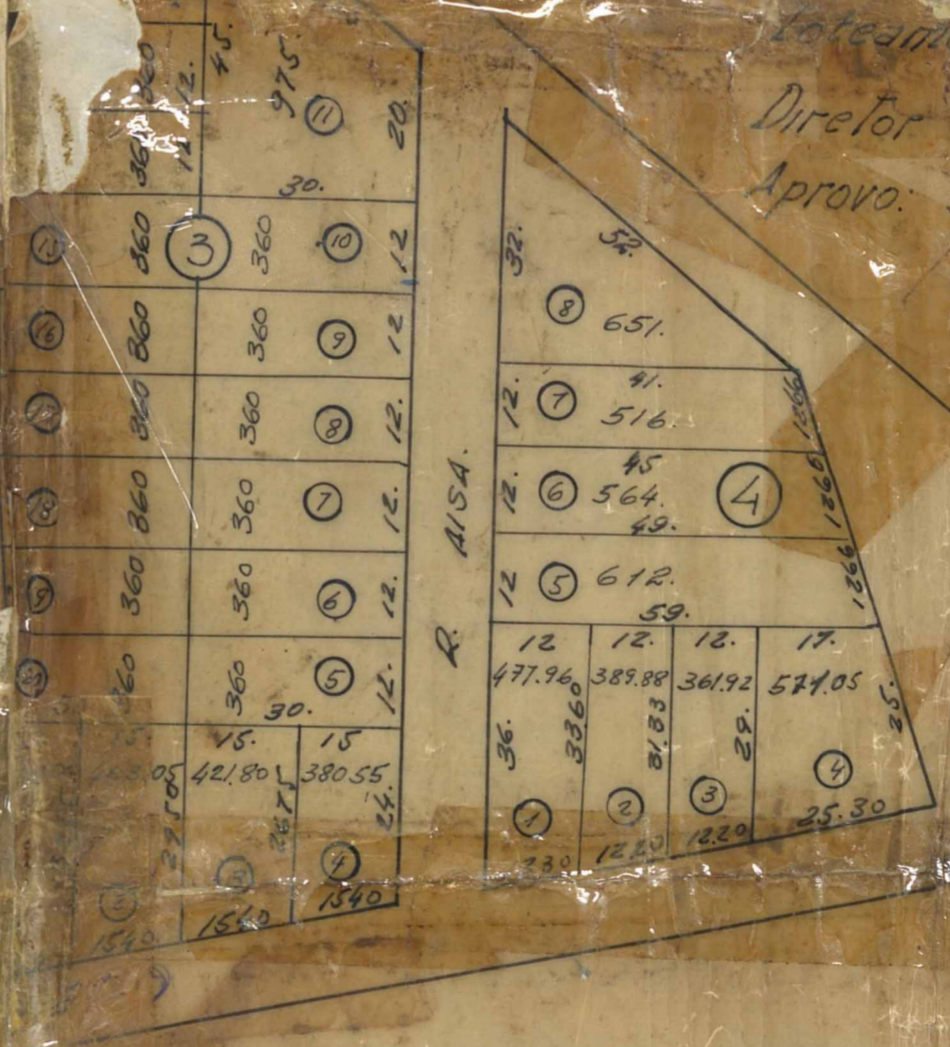 Diretor
Aprovo:
360
12.
45.
975
11
20.
360
12
30.
15
360
3
360
10
12
16
360
360
9
12.
17
360
360
8
12.
18
360
360
7
12.
360
360
6
12.
360
360
5
12.
30.
15.
15
421.80
380.55
29.50
26.75
24.
3
4
1540
1540
1540
R. AISA.
32.
52.
8
651.
41.
12.
7
516.
1266
45
12.
6
564.
4
1266
49.
12
5
612.
1266
59.
12
12.
12.
17.
477.96
389.88
361.92
571.05
36.
33.60
31.33
29.
25.
1
2
3
4
12.20
12.20
25.30